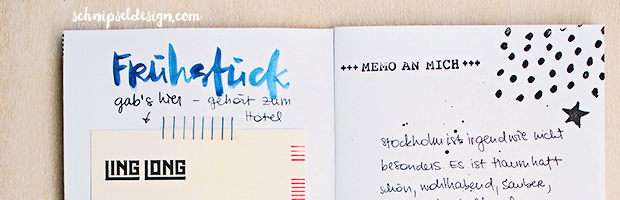 schnipseldesign.com
Frühstück
gab's hier – gehört zum
Hotel
LING LONG
+++ MEMO AN MICH +++
Stockholm ist irgendwie nicht
besonders. Es ist traumhaft
schön, wohlhabend, sauber,